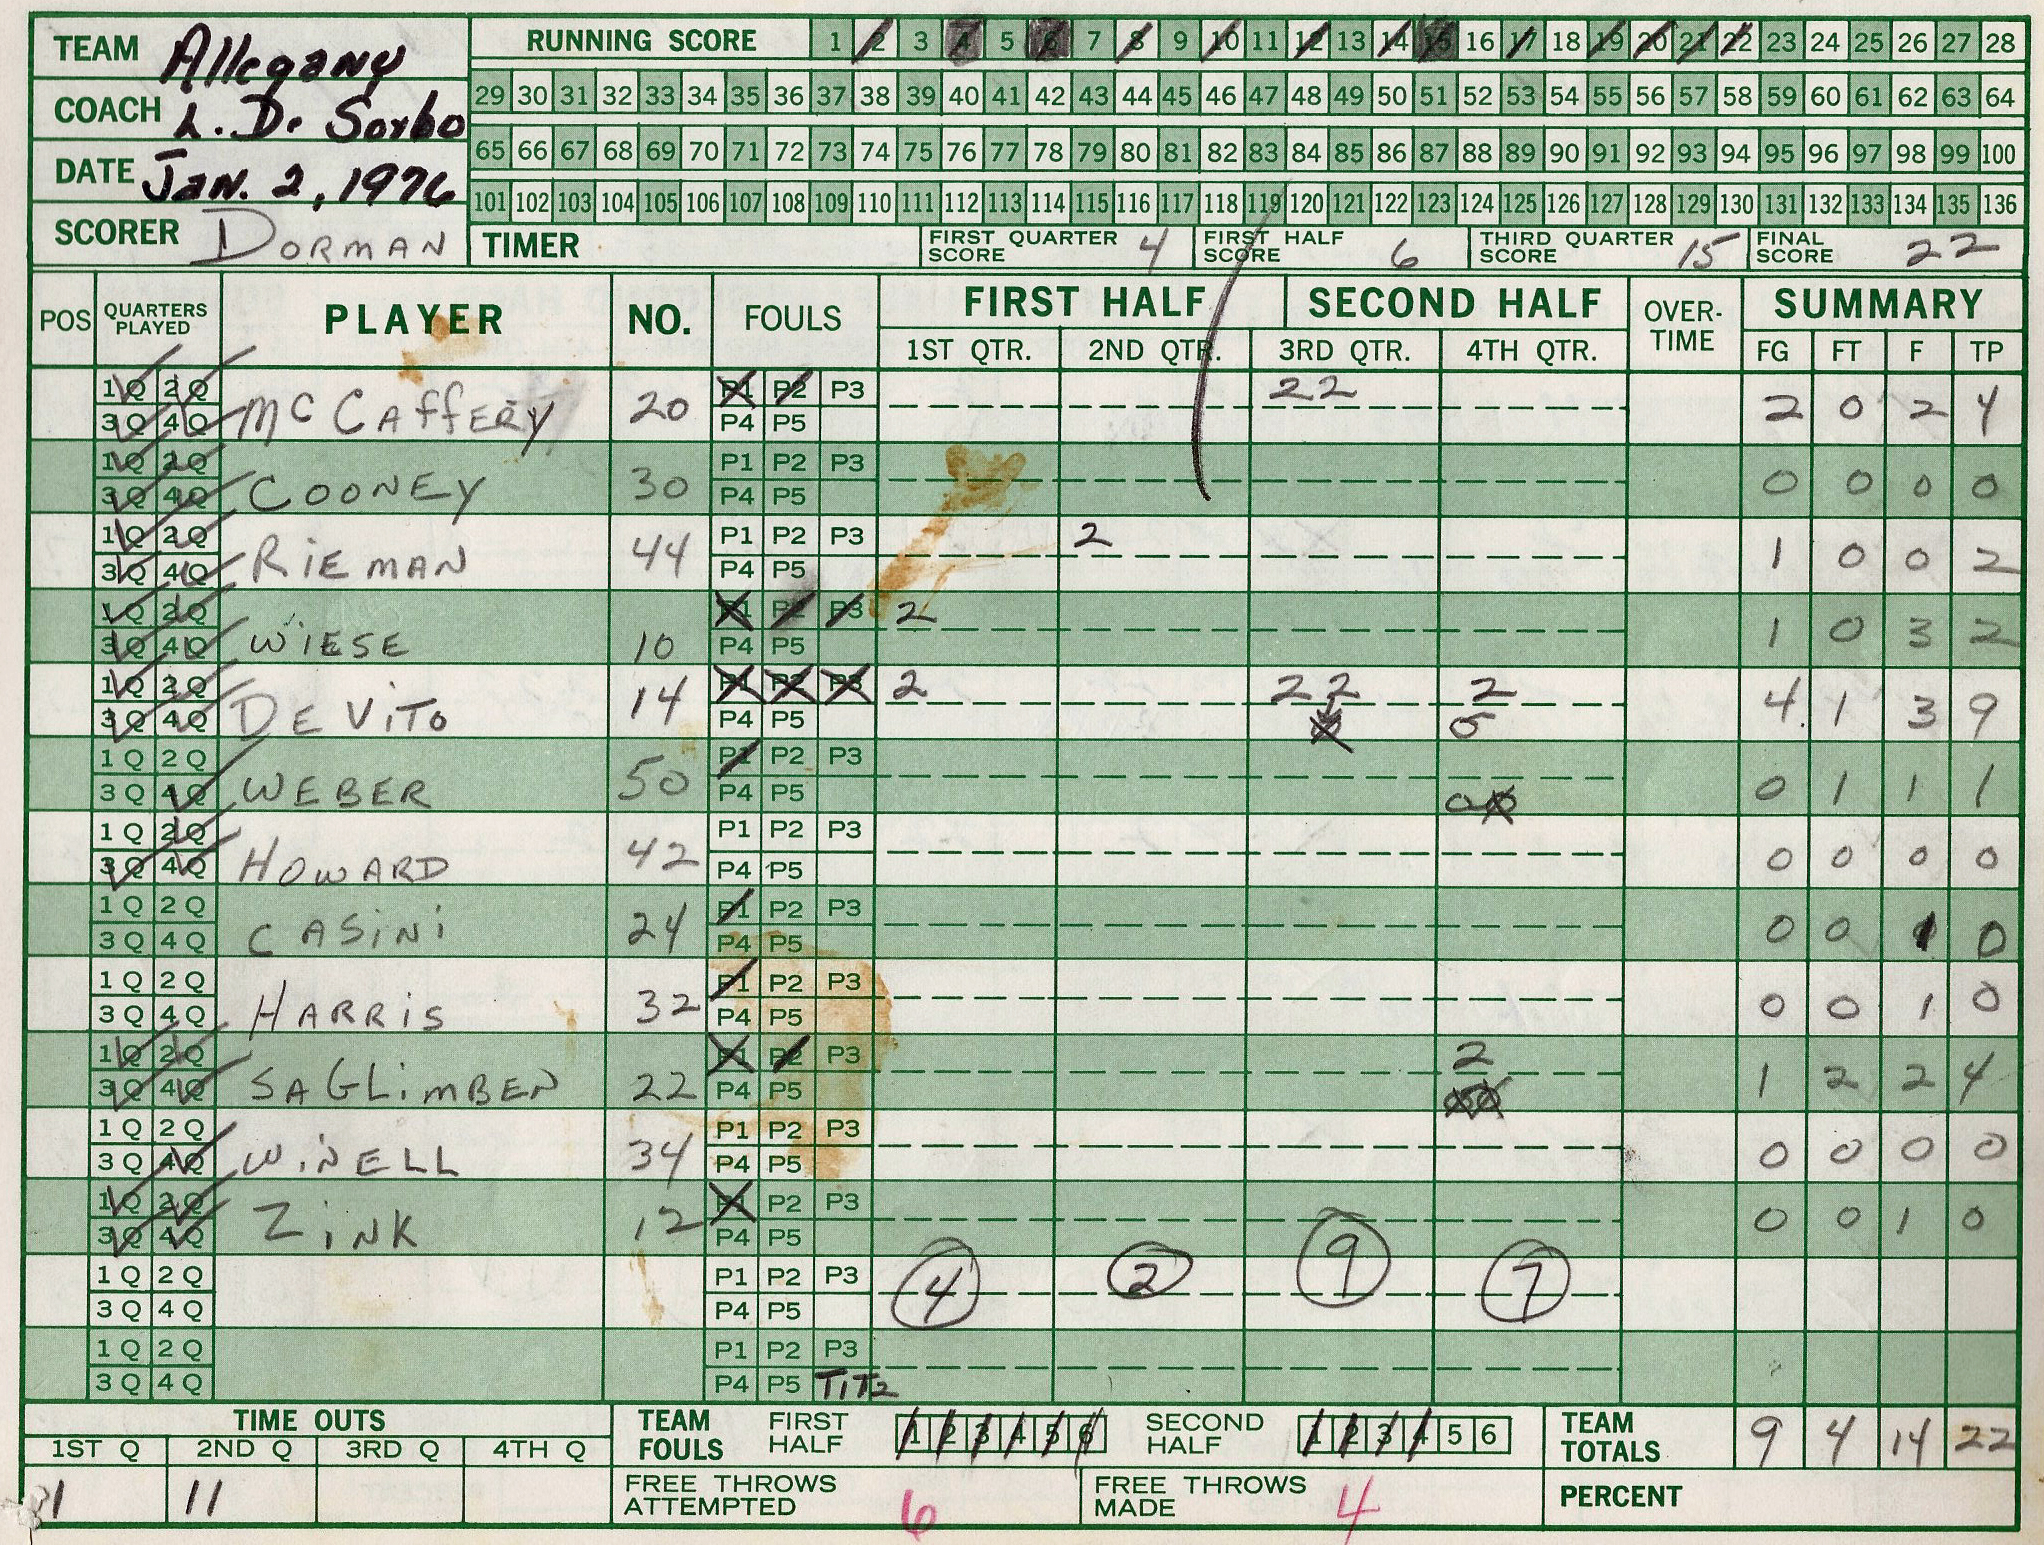 TEAM Allegany
COACH L. De Sorbo
DATE Jan. 2, 1976
SCORER DORMAN
RUNNING SCORE 1 2 3 4 5 6 7 8 9 10 11 12 13 14 15 16 17 18 19 20 21 22 23 24 25 26 27 28
29 30 31 32 33 34 35 36 37 38 39 40 41 42 43 44 45 46 47 48 49 50 51 52 53 54 55 56 57 58 59 60 61 62 63 64
65 66 67 68 69 70 71 72 73 74 75 76 77 78 79 80 81 82 83 84 85 86 87 88 89 90 91 92 93 94 95 96 97 98 99 100
101 102 103 104 105 106 107 108 109 110 111 112 113 114 115 116 117 118 119 120 121 122 123 124 125 126 127 128 129 130 131 132 133 134 135 136
TIMER FIRST QUARTER SCORE 4 FIRST HALF SCORE 6 THIRD QUARTER SCORE 15 FINAL SCORE 22
POS QUARTERS PLAYED PLAYER NO. FOULS FIRST HALF SECOND HALF OVER-TIME SUMMARY
1ST QTR. 2ND QTR. 3RD QTR. 4TH QTR. FG FT F TP
1Q 2Q P1 P2 P3 22
3Q 4Q McCAffERy 20 P4 P5 2 0 2 4
1Q 2Q P1 P2 P3
3Q 4Q COONEY 30 P4 P5 0 0 0 0
1Q 2Q P1 P2 P3 2
3Q 4Q RiEMAN 44 P4 P5 1 0 0 2
1Q 2Q P1 P2 P3 2
3Q 4Q WIESE 10 P4 P5 1 0 3 2
1Q 2Q P1 P2 P3 2 22 2
3Q 4Q DEViTo 14 P4 P5 0 4 1 3 9
1Q 2Q P1 P2 P3
3Q 4Q WEBER 50 P4 P5 0 0 0 1 1 1
1Q 2Q P1 P2 P3
3Q 4Q HOWARD 42 P4 P5 0 0 0 0
1Q 2Q P1 P2 P3
3Q 4Q CASiNi 24 P4 P5 0 0 1 0
1Q 2Q P1 P2 P3
3Q 4Q HARRiS 32 P4 P5 0 0 1 0
1Q 2Q P1 P2 P3 2
3Q 4Q SAGLiMBEN 22 P4 P5 0 0 1 2 2 4
1Q 2Q P1 P2 P3
3Q 4Q WiNELL 34 P4 P5 0 0 0 0
1Q 2Q P1 P2 P3
3Q 4Q ZiNK 12 P4 P5 0 0 1 0
1Q 2Q P1 P2 P3 4 2 9 7
3Q 4Q P4 P5
1Q 2Q P1 P2 P3
3Q 4Q P4 P5 T1T2
TIME OUTS TEAM FOULS FIRST HALF 1 2 3 4 5 6 SECOND HALF 1 2 3 4 5 6 TEAM TOTALS 9 4 14 22
1ST Q 2ND Q 3RD Q 4TH Q
1 11 FREE THROWS ATTEMPTED 6 FREE THROWS MADE 4 PERCENT